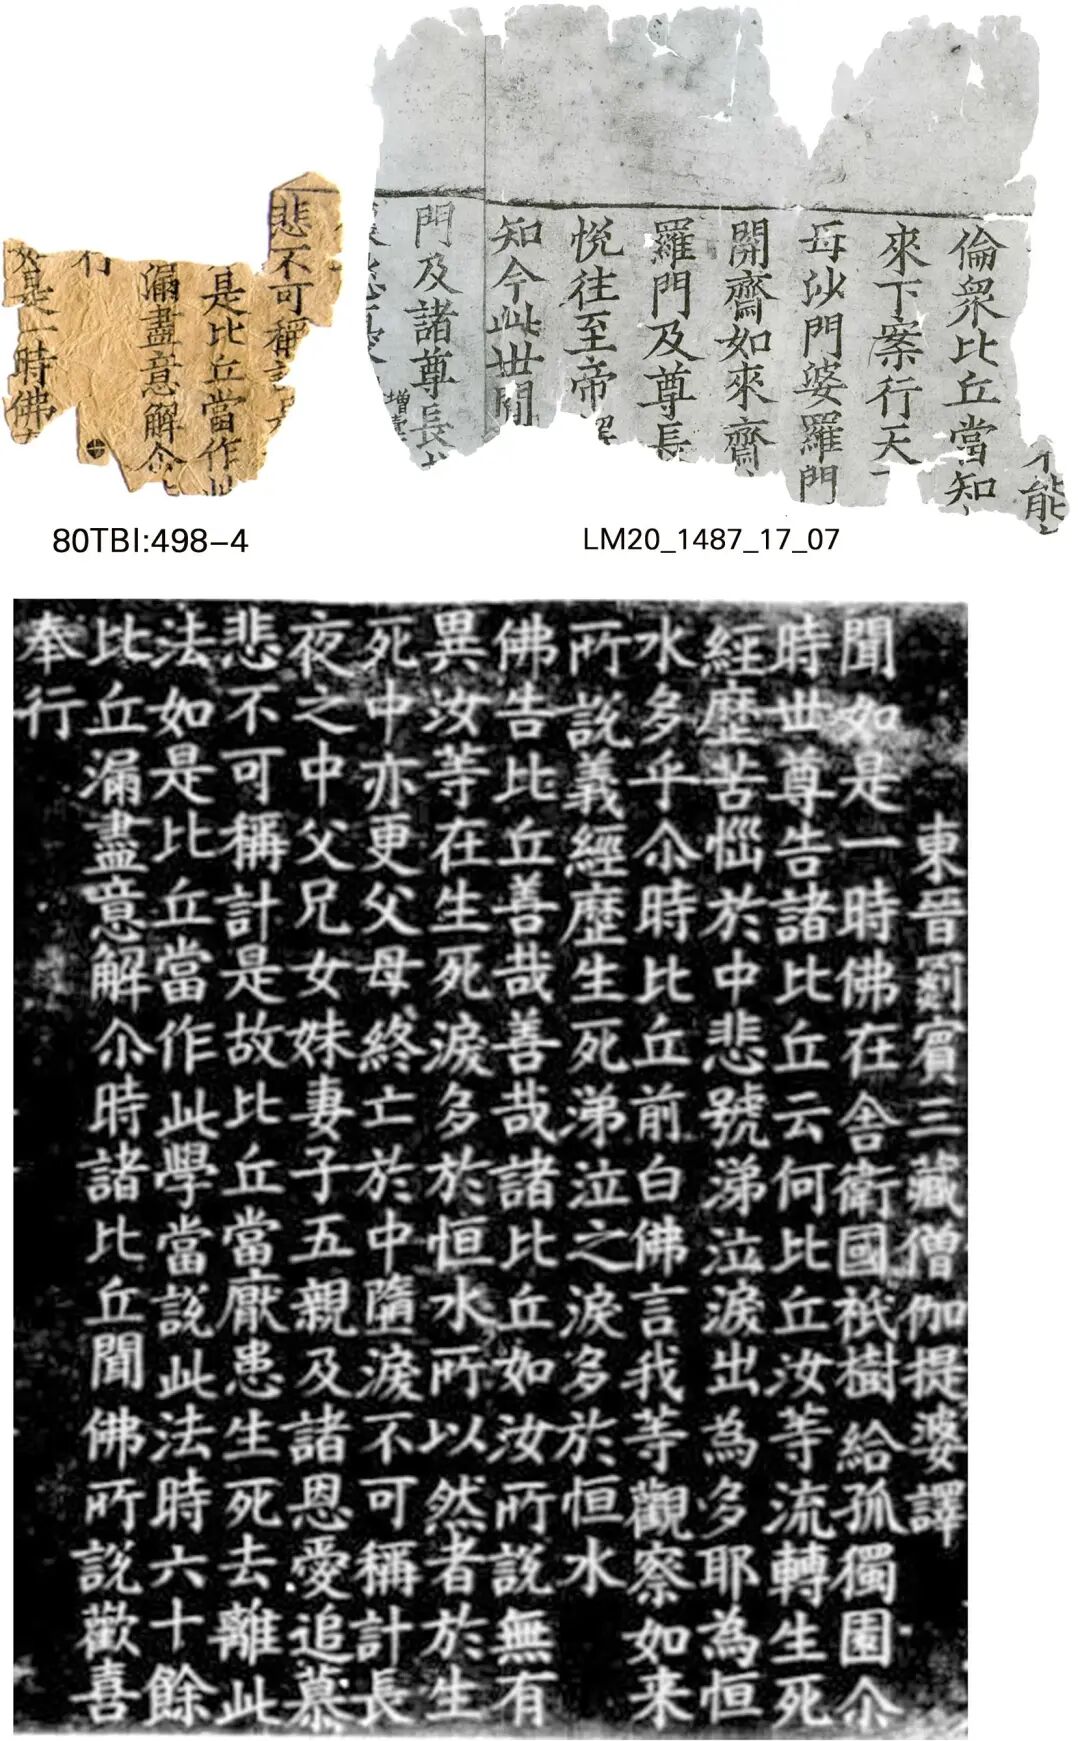 悲不可稱
是比丘當作
漏盡意解尒
行
是一時佛
80TBI:498-4
不能
倫衆比丘當知
來下案行天
母沙門婆羅門
開齋如來齋
羅門及尊長
悅往至帝
知今此世間
門及諸尊長
LM20_1487_17_07
東晉罽賓三藏僧伽提婆譯
聞如是一時佛在舍衛國祇樹給孤獨園尒
時世尊告諸比丘云何比丘汝等流轉生死
經歷苦惱於中悲號涕泣淚出為多耶為恒
水多乎尒時比丘前白佛言我等觀察如来
所說義經歷生死涕泣之淚多於恒水
佛告比丘善哉善哉諸比丘如汝所說無有
異汝等在生死淚多於恒水所以然者於生
死中亦更父母終亡於中墮淚不可稱計長
夜之中父兄女妹妻子五親及諸恩愛追慕
悲不可稱計是故比丘當厭患生死去離此
法如是比丘當作此學當說此法時六十餘
比丘漏盡意解尒時諸比丘聞佛所說歡喜
奉行